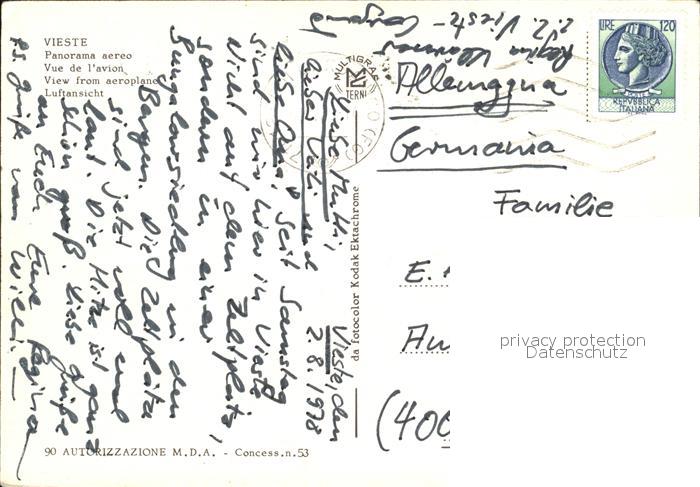 VIESTE
Panorama aereo
Vue de l'avion
View from aeroplane
Luftansicht
MULTIGRAF
TERNI
LIRE 120
REPVBBLICA
ITALIANA
Vieste, den
2.8.1978
Liebe Mutti,
lieber Vati und
liebe Oma! Seit Samstag
sind wir hier in Vieste
Nicht auf dem Zeltplatz,
sondern in einer
Bungalowsiedlung in den
Bergen. Die Zeltplätze
sind jetzt voll und
laut. Die Hitze ist ganz
schön groß. Liebe Grüße
an Euch Eure Regina
P.S. Grüße von Willi.
Regina
z.Z. Vieste -
da fotocolor Kodak Ektachrome
Allemagna
Germania
Familie
E.
(400
privacy protection
Datenschutz
90 AUTORIZZAZIONE M.D.A. - Concess.n.53